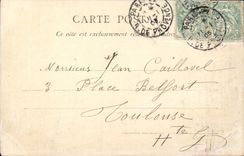 CARTE POSTALE
Ce côté est exclusivement réservé
Monsieur Jean Caillavel
3 Place Belfort
Toulouse
Hte G